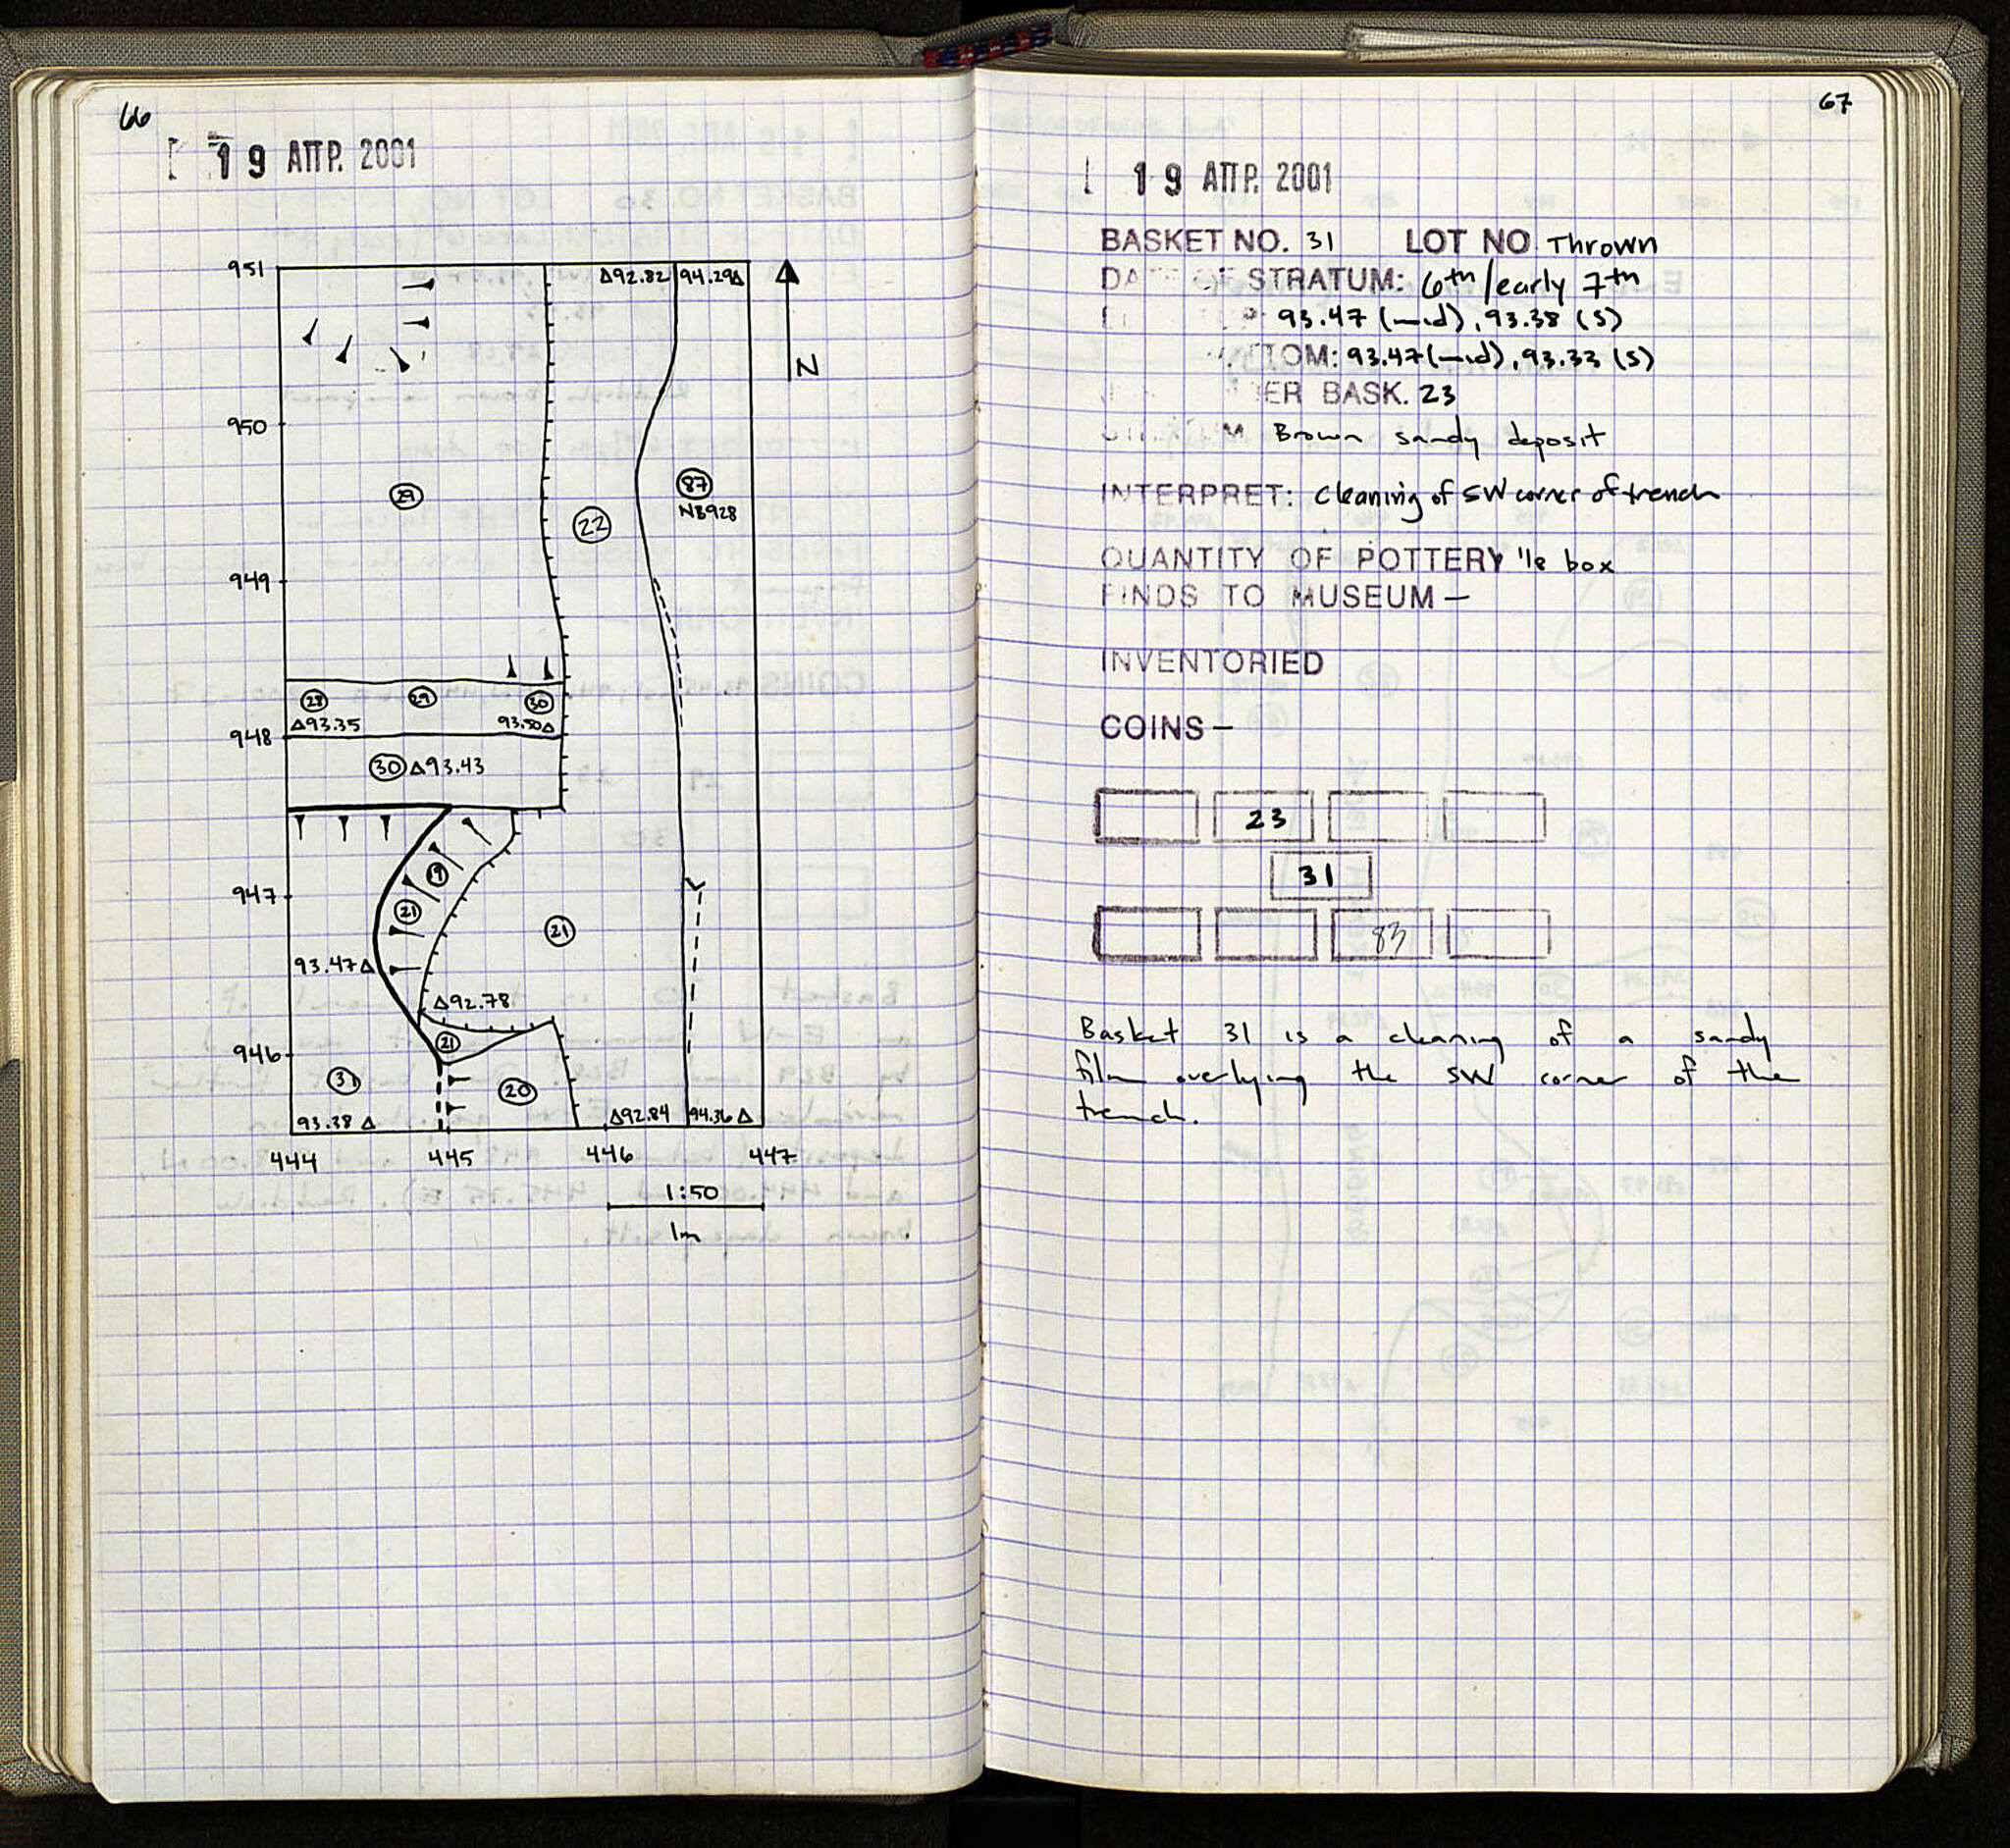 66
19 ΑΠΡ. 2001
951
Δ92.82 94.29Δ
N
950
29
87
NB928
22
949
28 29 30
Δ93.35 93.50Δ
948
30 Δ93.43
947
19
21
21
93.47Δ
Δ92.78
946
21
31
20
93.38 Δ
Δ92.84 94.36 Δ
444 445 446 447
1:50
1m
67
19 ΑΠΡ. 2001
BASKET NO. 31 LOT NO Thrown
STRATUM: 6th/early 7th
93.47 (mid), 93.38 (S)
TOM: 93.47 (mid), 93.33 (S)
ER BASK. 23
Brown sandy deposit
INTERPRET: Cleaning of SW corner of trench
QUANTITY OF POTTERY 1/8 box
FINDS TO MUSEUM —
INVENTORIED
COINS —
23
31
83
Basket 31 is a cleaning of a sandy
film overlying the SW corner of the
trench.